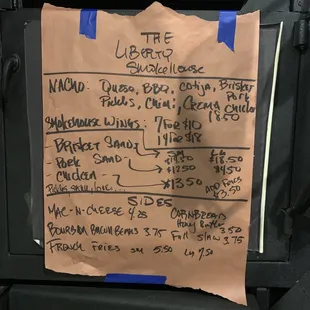 THE
LIBERTY
Smokehouse
NACHO- Queso, BBQ, Cotija, Brisket
Pork
Pickles, Chili, Crema Chicken
18.50
SMOKEHOUSE WINGS: 7 FOR $10
14 FOR $18
SM LG
BRISKET SAND $18.50
PORK SAND $12.50
CHICKEN $13.50 ADD FRIES
$3.50
SIDES
MAC-N-CHEESE CORNBREAD
Honey Butter 3.50
BOURBON BACON BEANS 3.75 Fall SLAW 3.75
FRENCH FRIES SM 5.50 LG 7.50